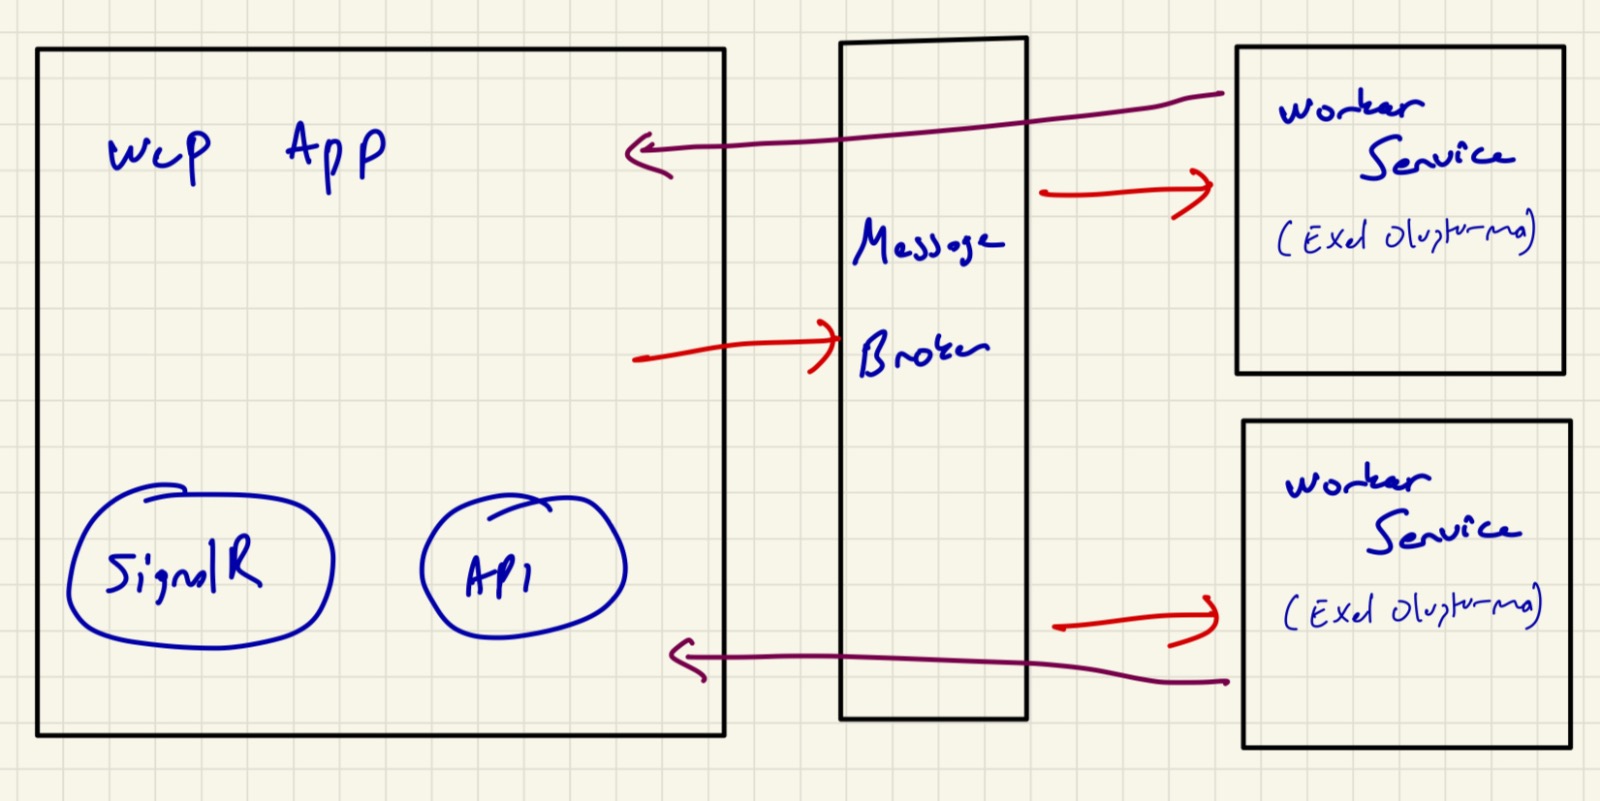 Wep App
SignalR
API
Message
Broker
Worker
Service
(Exel Oluşturma)
Worker
Service
(Exel Oluşturma)